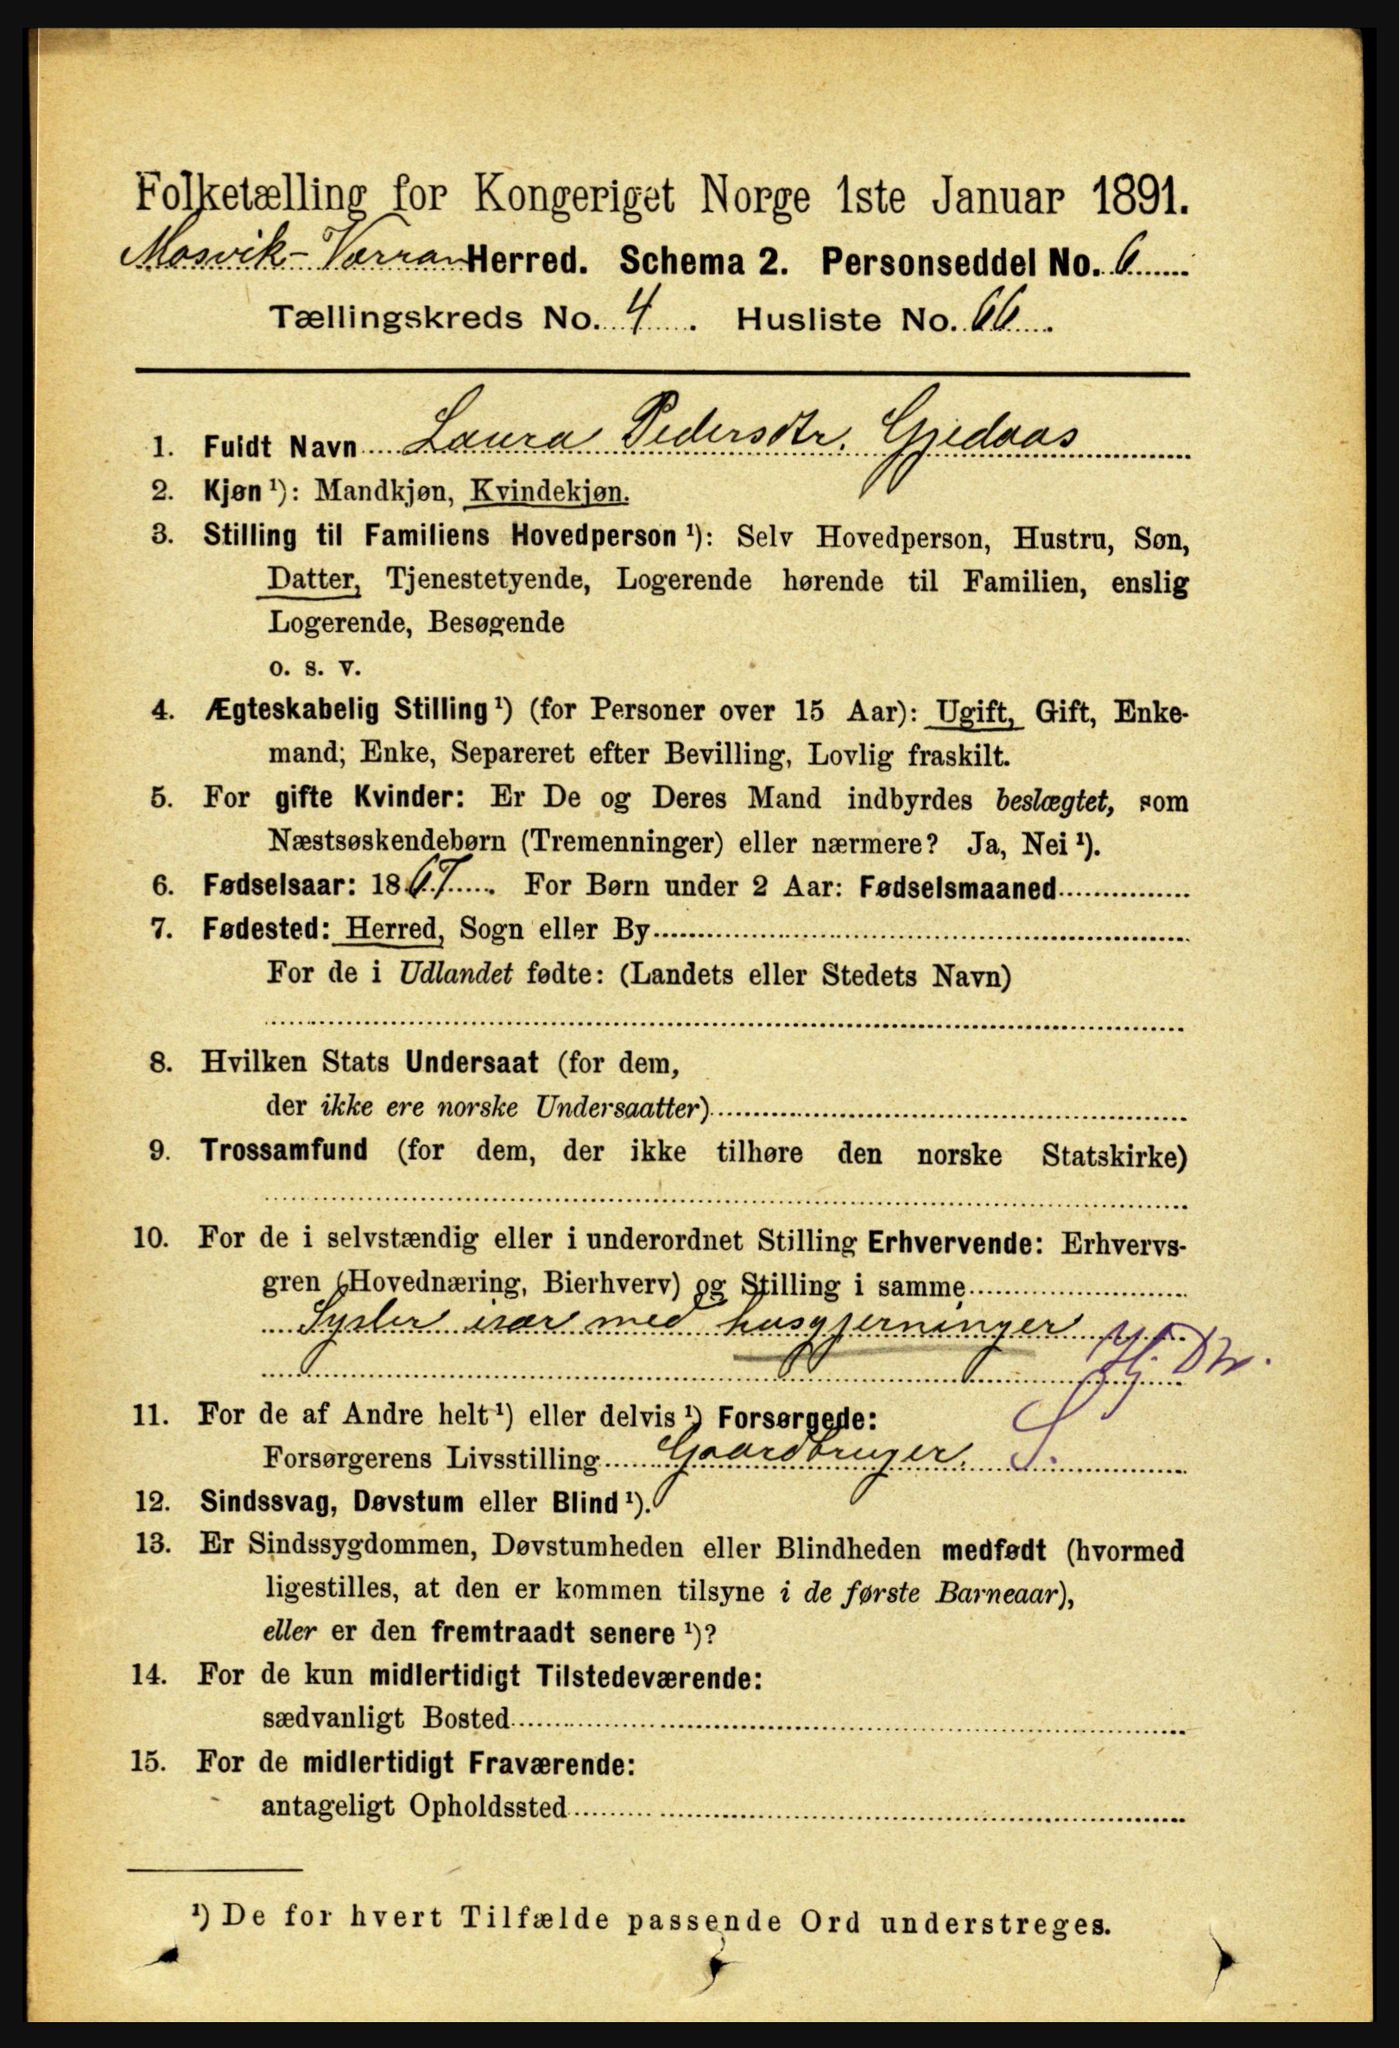 Folketælling for Kongeriget Norge 1ste Januar 1891.
Mosvik-Værran Herred. Schema 2. Personseddel No. 6
Tællingskreds No. 4. Husliste No. 66.
1. Fuldt Navn Laura Pedersdtr. Gjedaas
2. Kjøn ¹): Mandkjøn, Kvindekjøn.
3. Stilling til Familiens Hovedperson ¹): Selv Hovedperson, Hustru, Søn,
Datter, Tjenestetyende, Logerende hørende til Familien, enslig
Logerende, Besøgende
o. s. v.
4. Ægteskabelig Stilling ¹) (for Personer over 15 Aar): Ugift, Gift, Enke-
mand; Enke, Separeret efter Bevilling, Lovlig fraskilt.
5. For gifte Kvinder: Er De og Deres Mand indbyrdes beslægtet, som
Næstsøskendebørn (Tremenninger) eller nærmere? Ja, Nei ¹).
6. Fødselsaar: 1867. For Børn under 2 Aar: Fødselsmaaned
7. Fødested: Herred, Sogn eller By
For de i Udlandet fødte: (Landets eller Stedets Navn)
8. Hvilken Stats Undersaat (for dem,
der ikke ere norske Undersaatter)
9. Trossamfund (for dem, der ikke tilhøre den norske Statskirke)
10. For de i selvstændig eller i underordnet Stilling Erhvervende: Erhvervs-
gren (Hovednæring, Bierhverv) og Stilling i samme
Sysler især med husgjerninger
11. For de af Andre helt ¹) eller delvis ¹) Forsørgede: S.
Forsørgerens Livsstilling Gaardbruger.
12. Sindssvag, Døvstum eller Blind ¹).
13. Er Sindssygdommen, Døvstumheden eller Blindheden medfødt (hvormed
ligestilles, at den er kommen tilsyne i de første Barneaar),
eller er den fremtraadt senere ¹)?
14. For de kun midlertidigt Tilstedeværende:
sædvanligt Bosted
15. For de midlertidigt Fraværende:
antageligt Opholdssted
¹) De for hvert Tilfælde passende Ord understreges.